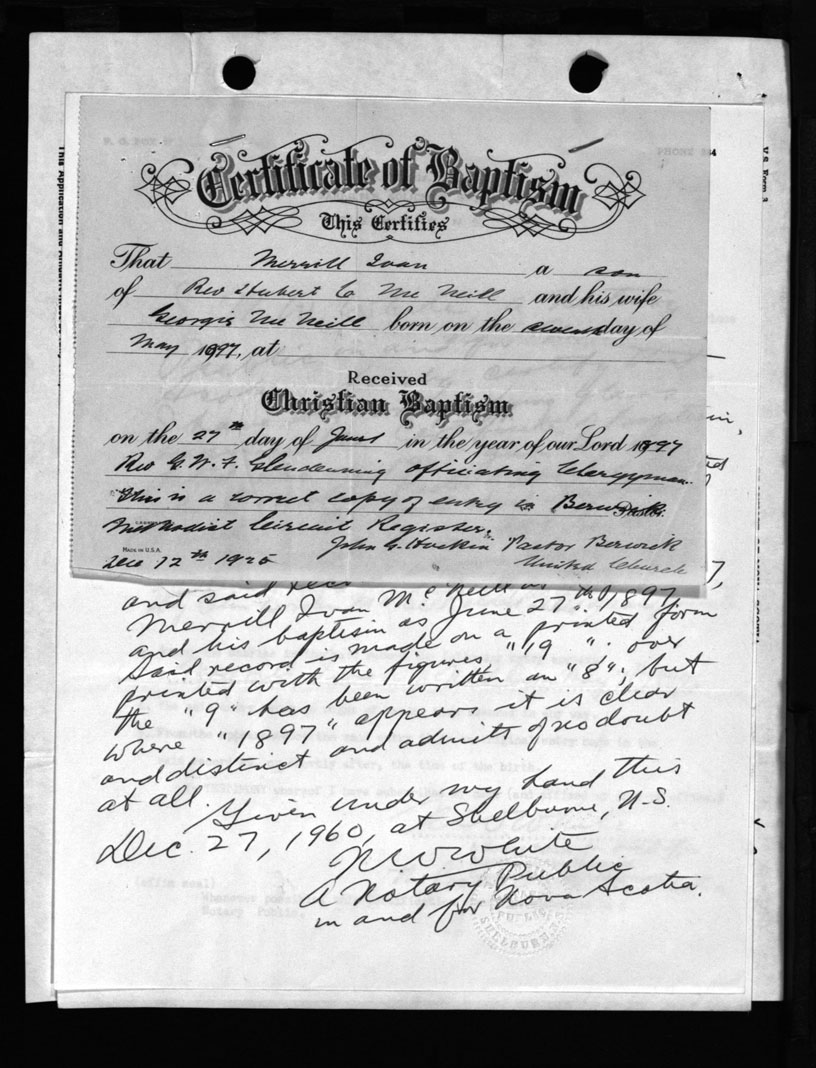 PHONE
V.S. Form 3
This Application and
Certificate of Baptism
This Certifies
That Merrill Ivan a son
of Rev Hubert C Mc Neill and his wife
Georgie Mc Neill born on the seventh day of
May 1897, at
Received
Christian Baptism
on the 27th day of June in the year of our Lord 1897
Rev G. W. F. Glendenning officiating Clergyman.
This is a correct copy of entry in Berwick Pastor
Methodist Circuit Register.
MADE IN U.S.A.
John G. Hockin Pastor Berwick
Dec 12th 1925 United Church
and said
Merrill Ivan McNeill June 27th 1897
and his baptism as
said record is made on a printed form
printed with the figures "19 ". over
the "9" has been written an "8"; but
where "1897" appears it is clear
and distinct and admits of no doubt
at all. Given under my hand this
Dec. 27, 1960, at Shelburne, N.S.
N W White
A Notary Public
in and for Nova Scotia.